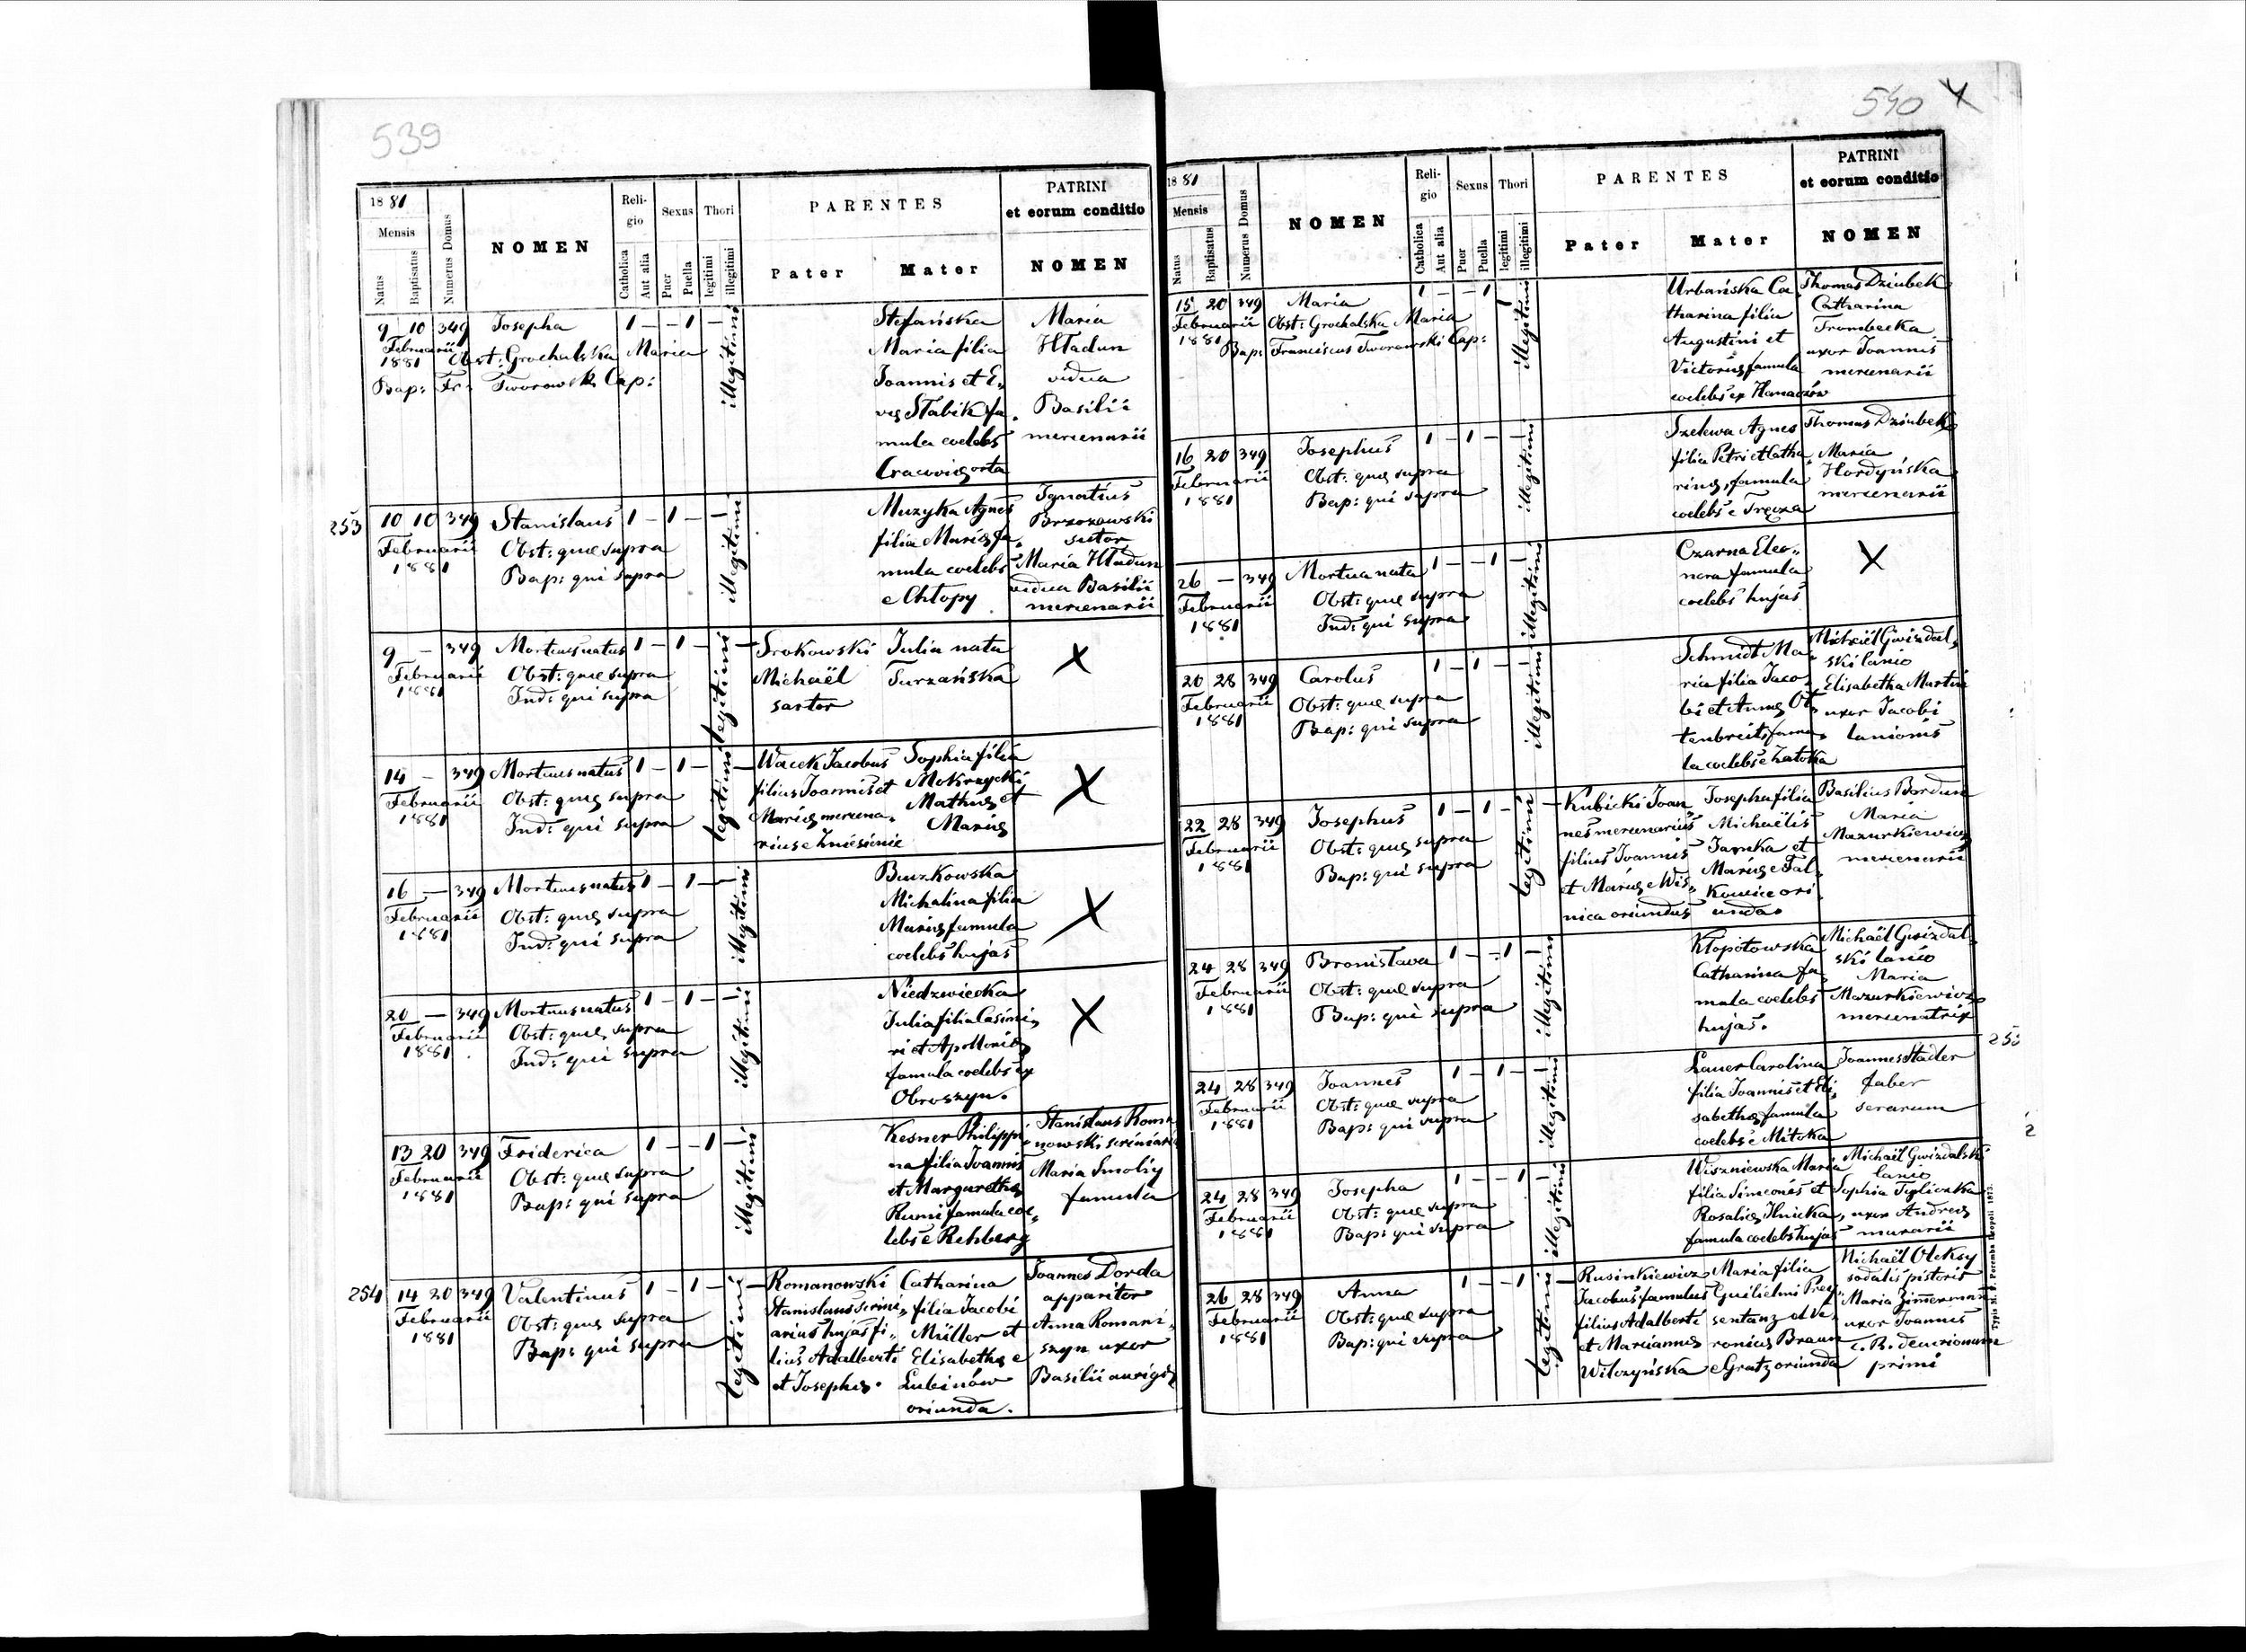 539
1881
Mensis
Natus
Baptisatus
Numerus Domus
NOMEN
Reli-
gio
Catholica
Aut alia
Sexus
Puer
Puella
Thori
legitimi
illegitimi
PARENTES
Pater
Mater
PATRINI
et eorum conditio
NOMEN
9 10 349 Josepha 1 – – 1 –
Februarii
1881 Obst: Grochalska Maria
Bap: Fr: Tworowski Cap:
illegitimi
Stefańska
Maria filia
Joannis et E„
vę Stabik fa„
mula coelebs
Cracovię orta
Maria
Hładun
vidua
Basilii
mercenarii
253 10 10 349 Stanislaus 1 – 1 – –
Februarii Obst: quæ supra
1881 Bap: qui supra
illegitimi
Muzyka Agnes
filia Marię fa„
mula coelebs
e Chłopy
Ignatius
Brzozowski
sutor
Maria Hładun
vidua Basilii
mercenarii
9 – 349 Mortuus natus 1 – 1 – –
Februarii Obst: quæ supra
1881 Ind: qui supra
legitimi
Srokowski
Michaël
sartor
Julia nata
Turzańska
X
14 – 349 Mortuus natus 1 – 1 – –
Februarii Obst: quę supra
1881 Ind: qui supra
legitimi
Wacek Jacobus
filius Joannis et
Marię mercena„
rius e Zniesienie
Sophia filia
Mokrzycki
Mathię et
Marię
X
16 – 349 Mortuus natus 1 – 1 – –
Februarii Obst: quę supra
1881 Ind: qui supra
illegitimi
Buczkowska
Michalina filia
Marię famula
coelebs hujas
X
20 – 349 Mortuus natus 1 – 1 – –
Februarii Obst: quę supra
1881 Ind: qui supra
illegitimi
Niedzwiecka
Julia filia Casimi„
ri et Apollonię
famula coelebs ex
Obroszyn.
X
13 20 349 Friderica 1 – – 1 –
Februarii Obst: quę supra
1881 Bap: qui supra
illegitimi
Kesner Philippi„
na filia Joannis
et Margarethę
Rumi famula coe„
lebs e Rehberg
Stanislaus Roma„
nowski
Maria Smoliy
famula
254 14 20 349 Valentinus 1 – 1 – –
Februarii Obst: quę supra
1881 Bap: qui supra
legitimi
Romanowski
Stanislaus scrini„
arius hujas fi„
lius Adalberti
et Josephę.
Catharina
filia Jacobi
Müller et
Elisabethę e
Lubinów
oriunda.
Joannes Dorda
apparitor
Anna Romani„
szyn uxor
Basilii aurigę
540
1881
Mensis
Natus
Baptisatus
Numerus Domus
NOMEN
Reli-
gio
Catholica
Aut alia
Sexus
Puer
Puella
Thori
legitimi
illegitimi
PARENTES
Pater
Mater
PATRINI
et eorum conditio
NOMEN
15 20 349 Maria 1 – – 1 –
Februarii Obst: Grochalska Maria
1881 Bap: Franciscus Tworowski Cap:
illegitimi
Urbańska Ca„
tharina filia
Augustini et
Victorię famula
coelebs ex
Thomas Dziubek
Catharina
Trombecka
uxor Joannis
mercenarii
16 20 349 Josephus 1 – 1 – –
Februarii Obst: quę supra
1881 Bap: qui supra
illegitimi
Szelewa Agnes
filia Petri et Catha„
rinę, famula
coelebs e Tręcza
Thomas Dziubek
Maria
Hordyńska
mercenarii
26 – 349 Mortua nata 1 – – 1 –
Februarii Obst: quę supra
1881 Ind: qui supra
illegitimi
Czarna Eleo„
nora famula
coelebs hujas
X
20 28 349 Carolus 1 – 1 – –
Februarii Obst: quę supra
1881 Bap: qui supra
illegitimi
Schmidt Ma„
ria filia Jaco„
bi et Annę Ot„
tenbreits, famu„
la coelebs e Zatoka
Michaël Gwizdal„
ski lanio
Elisabetha Martini
uxor Jacobi
lanionis
22 28 349 Josephus 1 – 1 – –
Februarii Obst: quę supra
1881 Bap: qui supra
legitimi
Kubicki Joan
nes mercenarius
filius Joannis
et Marię e Wis„
nica oriundus
Josepha filia
Michaëlis
Jamka et
Marię e Fal„
kowice ori
unda
Basilius Bordun
Maria
Mazurkiewicz
mercenarii
24 28 349 Bronisława 1 – – 1 –
Februarii Obst: quę supra
1881 Bap: qui supra
illegitimi
Kłopotowska
Catharina fa„
mula coelebs
hujas.
Michaël Gwizdal„
ski lanio
Maria
Mazurkiewicz
mercenatrix
24 28 349 Joannes 1 – 1 – –
Februarii Obst: quę supra
1881 Bap: qui supra
illegitimi
Lauer Carolina
filia Joannis et Eli„
sabethę, famula
coelebs e Mitska
Joannes Stadler
faber
serarum
24 28 349 Josepha 1 – – 1 –
Februarii Obst: quę supra
1881 Bap: qui supra
illegitimi
Wiszniewska Maria
filia Simeonis et
Rosalię Ilnicka,
famula coelebs hujas
Michaël Gwizdalski
lanio
Sophia
uxor Andreę
murarii
26 28 349 Anna 1 – – 1 –
Februarii Obst: quę supra
1881 Bap: qui supra
legitimi
Rusinkiewicz
Jacobus famulus
filius Adalberti
et Mariannę
Wilczyńska
Maria filia
Guilielmi Prey„
sentanz et Ve„
ronicę Braun
e Gratz oriunda
Michaël Oleksy
sodalis pistoris
Maria Zimmermann
uxor Joannis
c. R. decurionum
primi